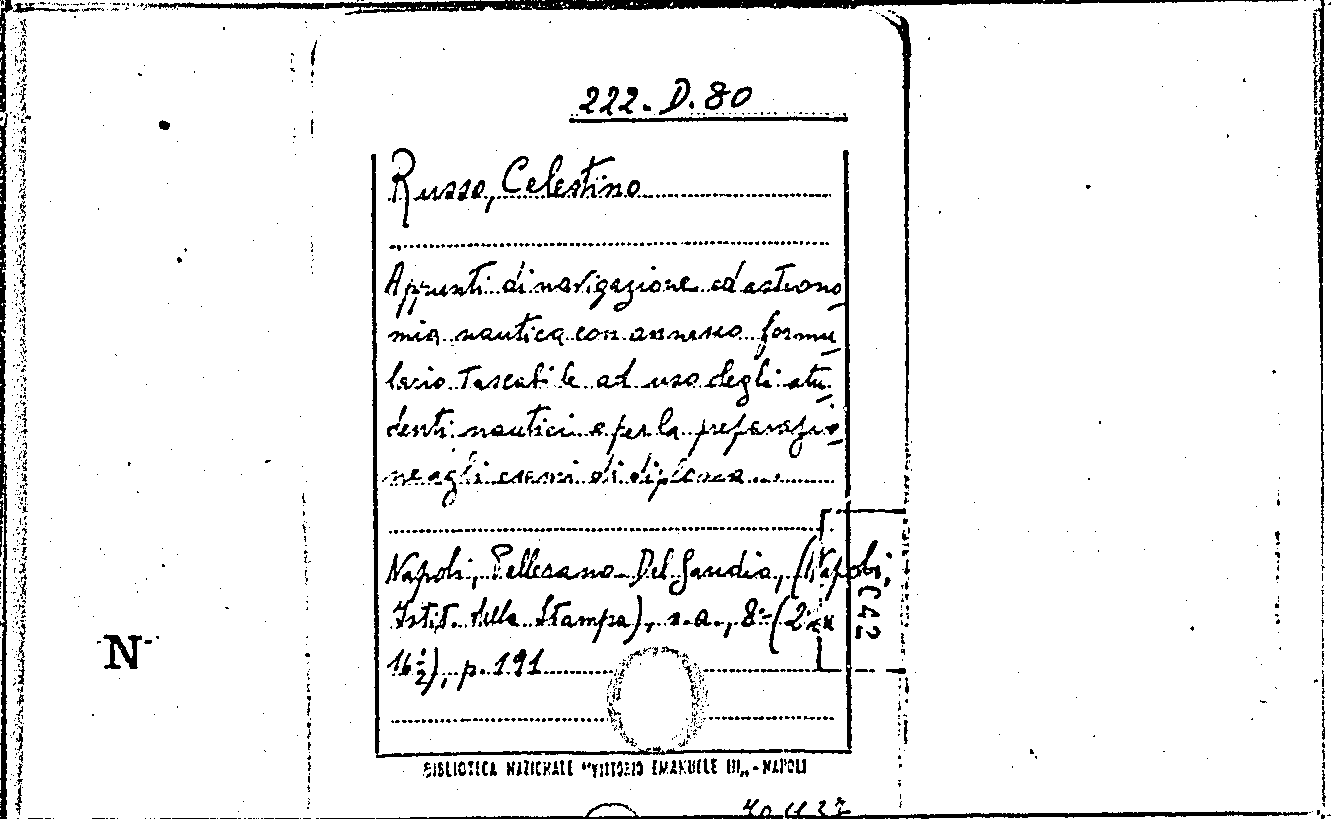 222. D. 80
Russo, Celestino
Appunti di navigazione ed astrono
mia nautica con annesso formu
lario tascabile ad uso degli stu
denti nautici e per la preparazio
ne agli esami di diploma...
Napoli, Pellerano-Del Gaudio, (Napoli,
Istit. della Stampa), s.a., 8º (
16½), p. 191
C42
N
BIBLIOTECA NAZIONALE "VITTORIO EMANUELE III„ - NAPOLI